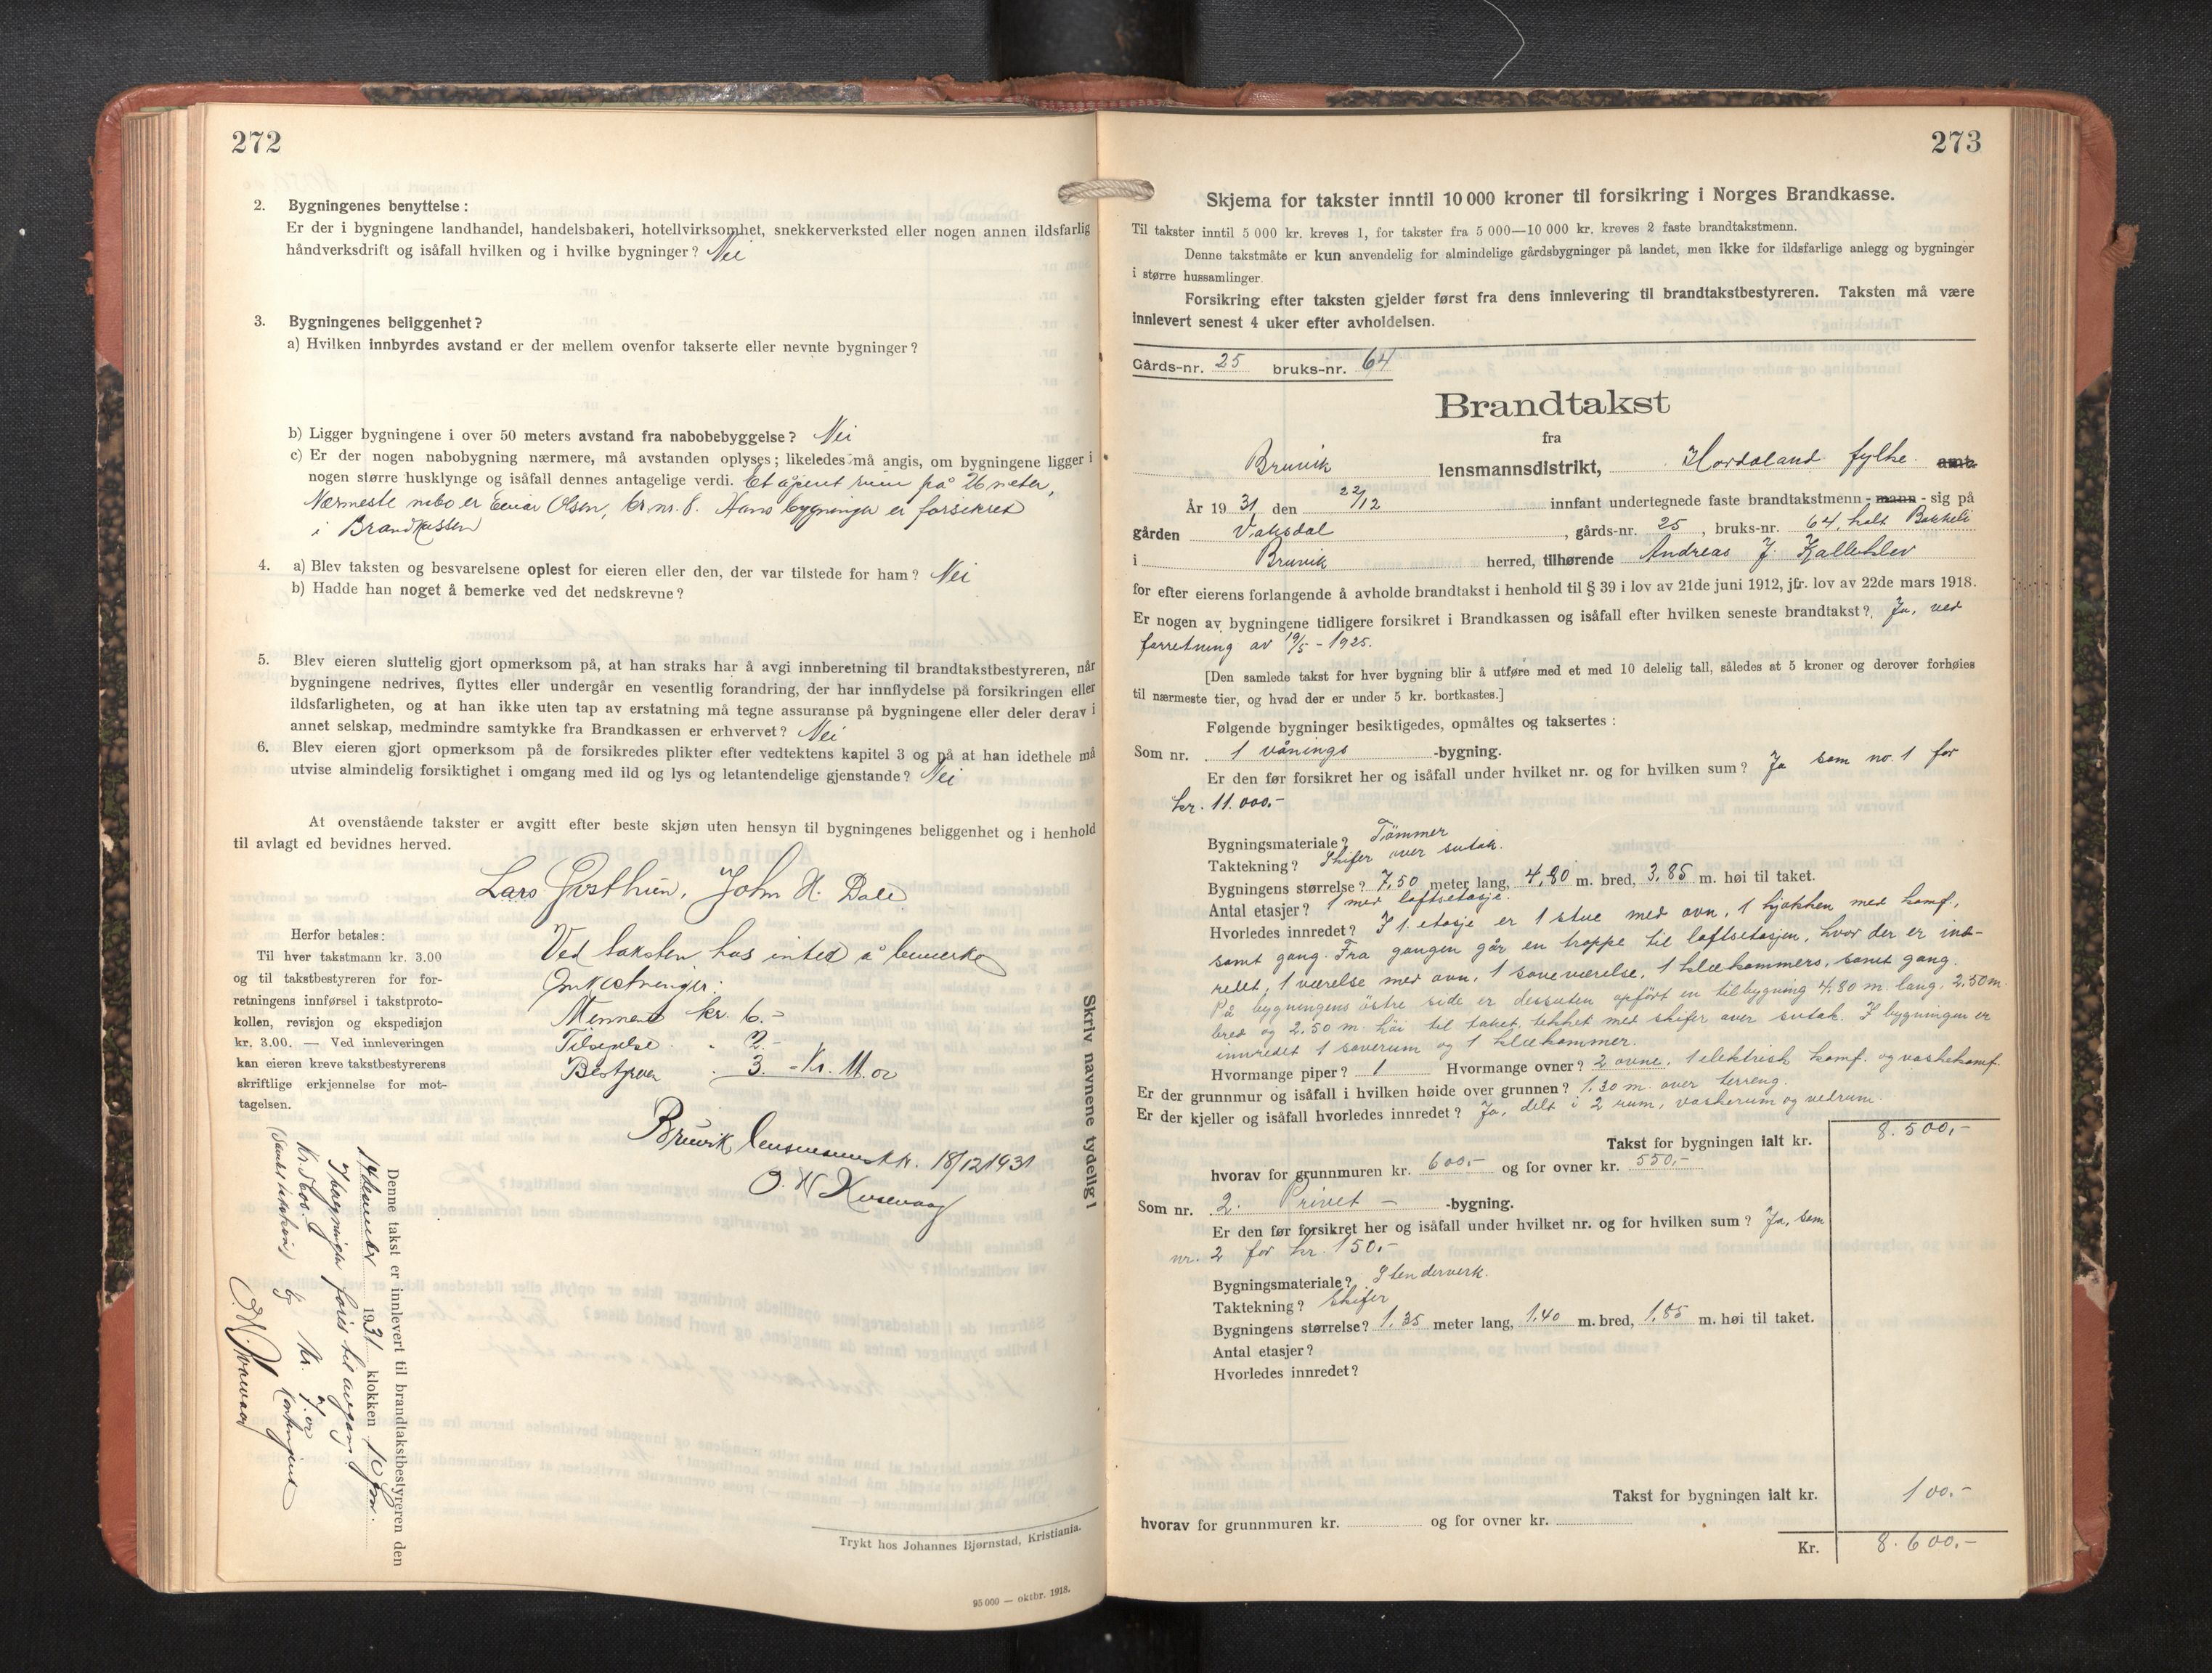 272
2. Bygningenes benyttelse:
Er der i bygningene landhandel, handelsbakeri, hotellvirksomhet, snekkerverksted eller nogen annen ildsfarlig
håndverksdrift og isåfall hvilken og i hvilke bygninger? Nei
3. Bygningenes beliggenhet?
a) Hvilken innbyrdes avstand er der mellem ovenfor takserte eller nevnte bygninger?
b) Ligger bygningene i over 50 meters avstand fra nabobebyggelse? Nei
c) Er der nogen nabobygning nærmere, må avstanden oplyses; likeledes må angis, om bygningene ligger i
nogen større husklynge og isåfall dennes antagelige verdi. Et åpent rum på 26 meter,
Nærmeste nabo er Einar Olsen, br.nr. 8. Hans bygninger er forsikret
i Brandkassen
4. a) Blev taksten og besvarelsene oplest for eieren eller den, der var tilstede for ham? Nei
b) Hadde han noget å bemerke ved det nedskrevne?
5. Blev eieren sluttelig gjort opmerksom på, at han straks har å avgi innberetning til brandtakstbestyreren, når
bygningene nedrives, flyttes eller undergår en vesentlig forandring, der har innflydelse på forsikringen eller
ildsfarligheten, og at han ikke uten tap av erstatning må tegne assuranse på bygningene eller deler derav i
annet selskap, medmindre samtykke fra Brandkassen er erhvervet? Nei
6. Blev eieren gjort opmerksom på de forsikredes plikter efter vedtektens kapitel 3 og på at han idethele må
utvise almindelig forsiktighet i omgang med ild og lys og letantendelige gjenstande? Nei
At ovenstående takster er avgitt efter beste skjøn uten hensyn til bygningenes beliggenhet og i henhold
til avlagt ed bevidnes herved.
Lars Gjerthien, John H. Dale
Herfor betales:
Til hver takstmann kr. 3.00
og til takstbestyreren for for-
retningens innførsel i takstproto-
kollen, revisjon og ekspedisjon
kr. 3.00. — Ved innleveringen
kan eieren kreve takstbestyrerens
skriftlige erkjennelse for mot-
tagelsen.
Ved taksten has intet å bemerke
Omkostninger:
Mennene kr. 6.-
Tilsigelse - 2.-
Bestyrer . 3. - Kr. 11.00
Bruvik lensmannsktr. 18/12 1931
Skriv navnene tydelig!
Denne takst er innlevert til brandtakstbestyreren den
1931 klokken 10 fm.
Trykt hos Johannes Bjørnstad, Kristiania.
95 000 — oktbr. 1918.
273
Skjema for takster inntil 10 000 kroner til forsikring i Norges Brandkasse.
Til takster inntil 5 000 kr. kreves 1, for takster fra 5 000—10 000 kr. kreves 2 faste brandtakstmenn.
Denne takstmåte er kun anvendelig for almindelige gårdsbygninger på landet, men ikke for ildsfarlige anlegg og bygninger
i større hussamlinger.
Forsikring efter taksten gjelder først fra dens innlevering til brandtakstbestyreren. Taksten må være
innlevert senest 4 uker efter avholdelsen.
Gårds-nr. 25 bruks-nr. 64
Brandtakst
fra
Bruvik lensmannsdistrikt, Hordaland fylke. amt.
År 1931 den 22/12 innfant undertegnede faste brandtakstmenn - mann - sig på
gården Vaksdal, gårds-nr. 25, bruks-nr. 64, kalt Bakkeli
i Bruvik herred, tilhørende Andreas J. Kalleklev
for efter eierens forlangende å avholde brandtakst i henhold til § 39 i lov av 21de juni 1912, jfr. lov av 22de mars 1918.
Er nogen av bygningene tidligere forsikret i Brandkassen og isåfall efter hvilken seneste brandtakst? Ja, ved
forretning av 19/5 - 1925.
[Den samlede takst for hver bygning blir å utføre med et med 10 delelig tall, således at 5 kroner og derover forhøies
til nærmeste tier, og hvad der er under 5 kr. bortkastes.]
Følgende bygninger besiktigedes, opmåltes og taksertes:
Som nr. 1 vånings -bygning.
Er den før forsikret her og isåfall under hvilket nr. og for hvilken sum? Ja som no. 1 for
kr. 11.000.-
Bygningsmateriale? Tømmer
Taktekning? Skifer over sutak.
Bygningens størrelse? 7,50 meter lang, 4,80 m. bred, 3,85 m. høi til taket.
Antal etasjer? 1 med loftsetasje.
Hvorledes innredet? I 1. etasje er 1 stue med ovn, 1 kjøkken med komf,
samt gang. Fra gangen går en trappe til loftsetasjen, hvor der er inn-
redet, 1 værelse med ovn, 1 soveværelse, 1 klækammers, samt gang.
På bygningens östre side er dessuten opført en tilbygning 4.80 m. lang, 2,50 m.
bred og 2.50 m. høi til taket, tekket med skifer over sutak. I bygningen er
innredet 1 soverum og 1 klækammer.
Hvormange piper? 1 Hvormange ovner? 2 ovne, 1 elektrisk komf. og vaskekomf.
Er der grunnmur og isåfall i hvilken høide over grunnen? 1.30 m. over terreng.
Er der kjeller og isåfall hvorledes innredet? Ja, delt i 2 rum, vaskerum og vedrum.
Takst for bygningen ialt kr. 8.500,-
hvorav for grunnmuren kr. 600,- og for ovner kr. 550,-
Som nr. 2. Privet - -bygning.
Er den før forsikret her og isåfall under hvilket nr. og for hvilken sum? Ja, som
nr. 2 for kr. 150.-
Bygningsmateriale? Stenderverk.
Taktekning? Skifer
Bygningens størrelse? 1,35 meter lang, 1,40 m. bred, 1,85 m. høi til taket.
Antal etasjer?
Hvorledes innredet?
Takst for bygningen ialt kr. 100.-
hvorav for grunnmuren kr. og for ovner kr.
Kr. 8.600.-